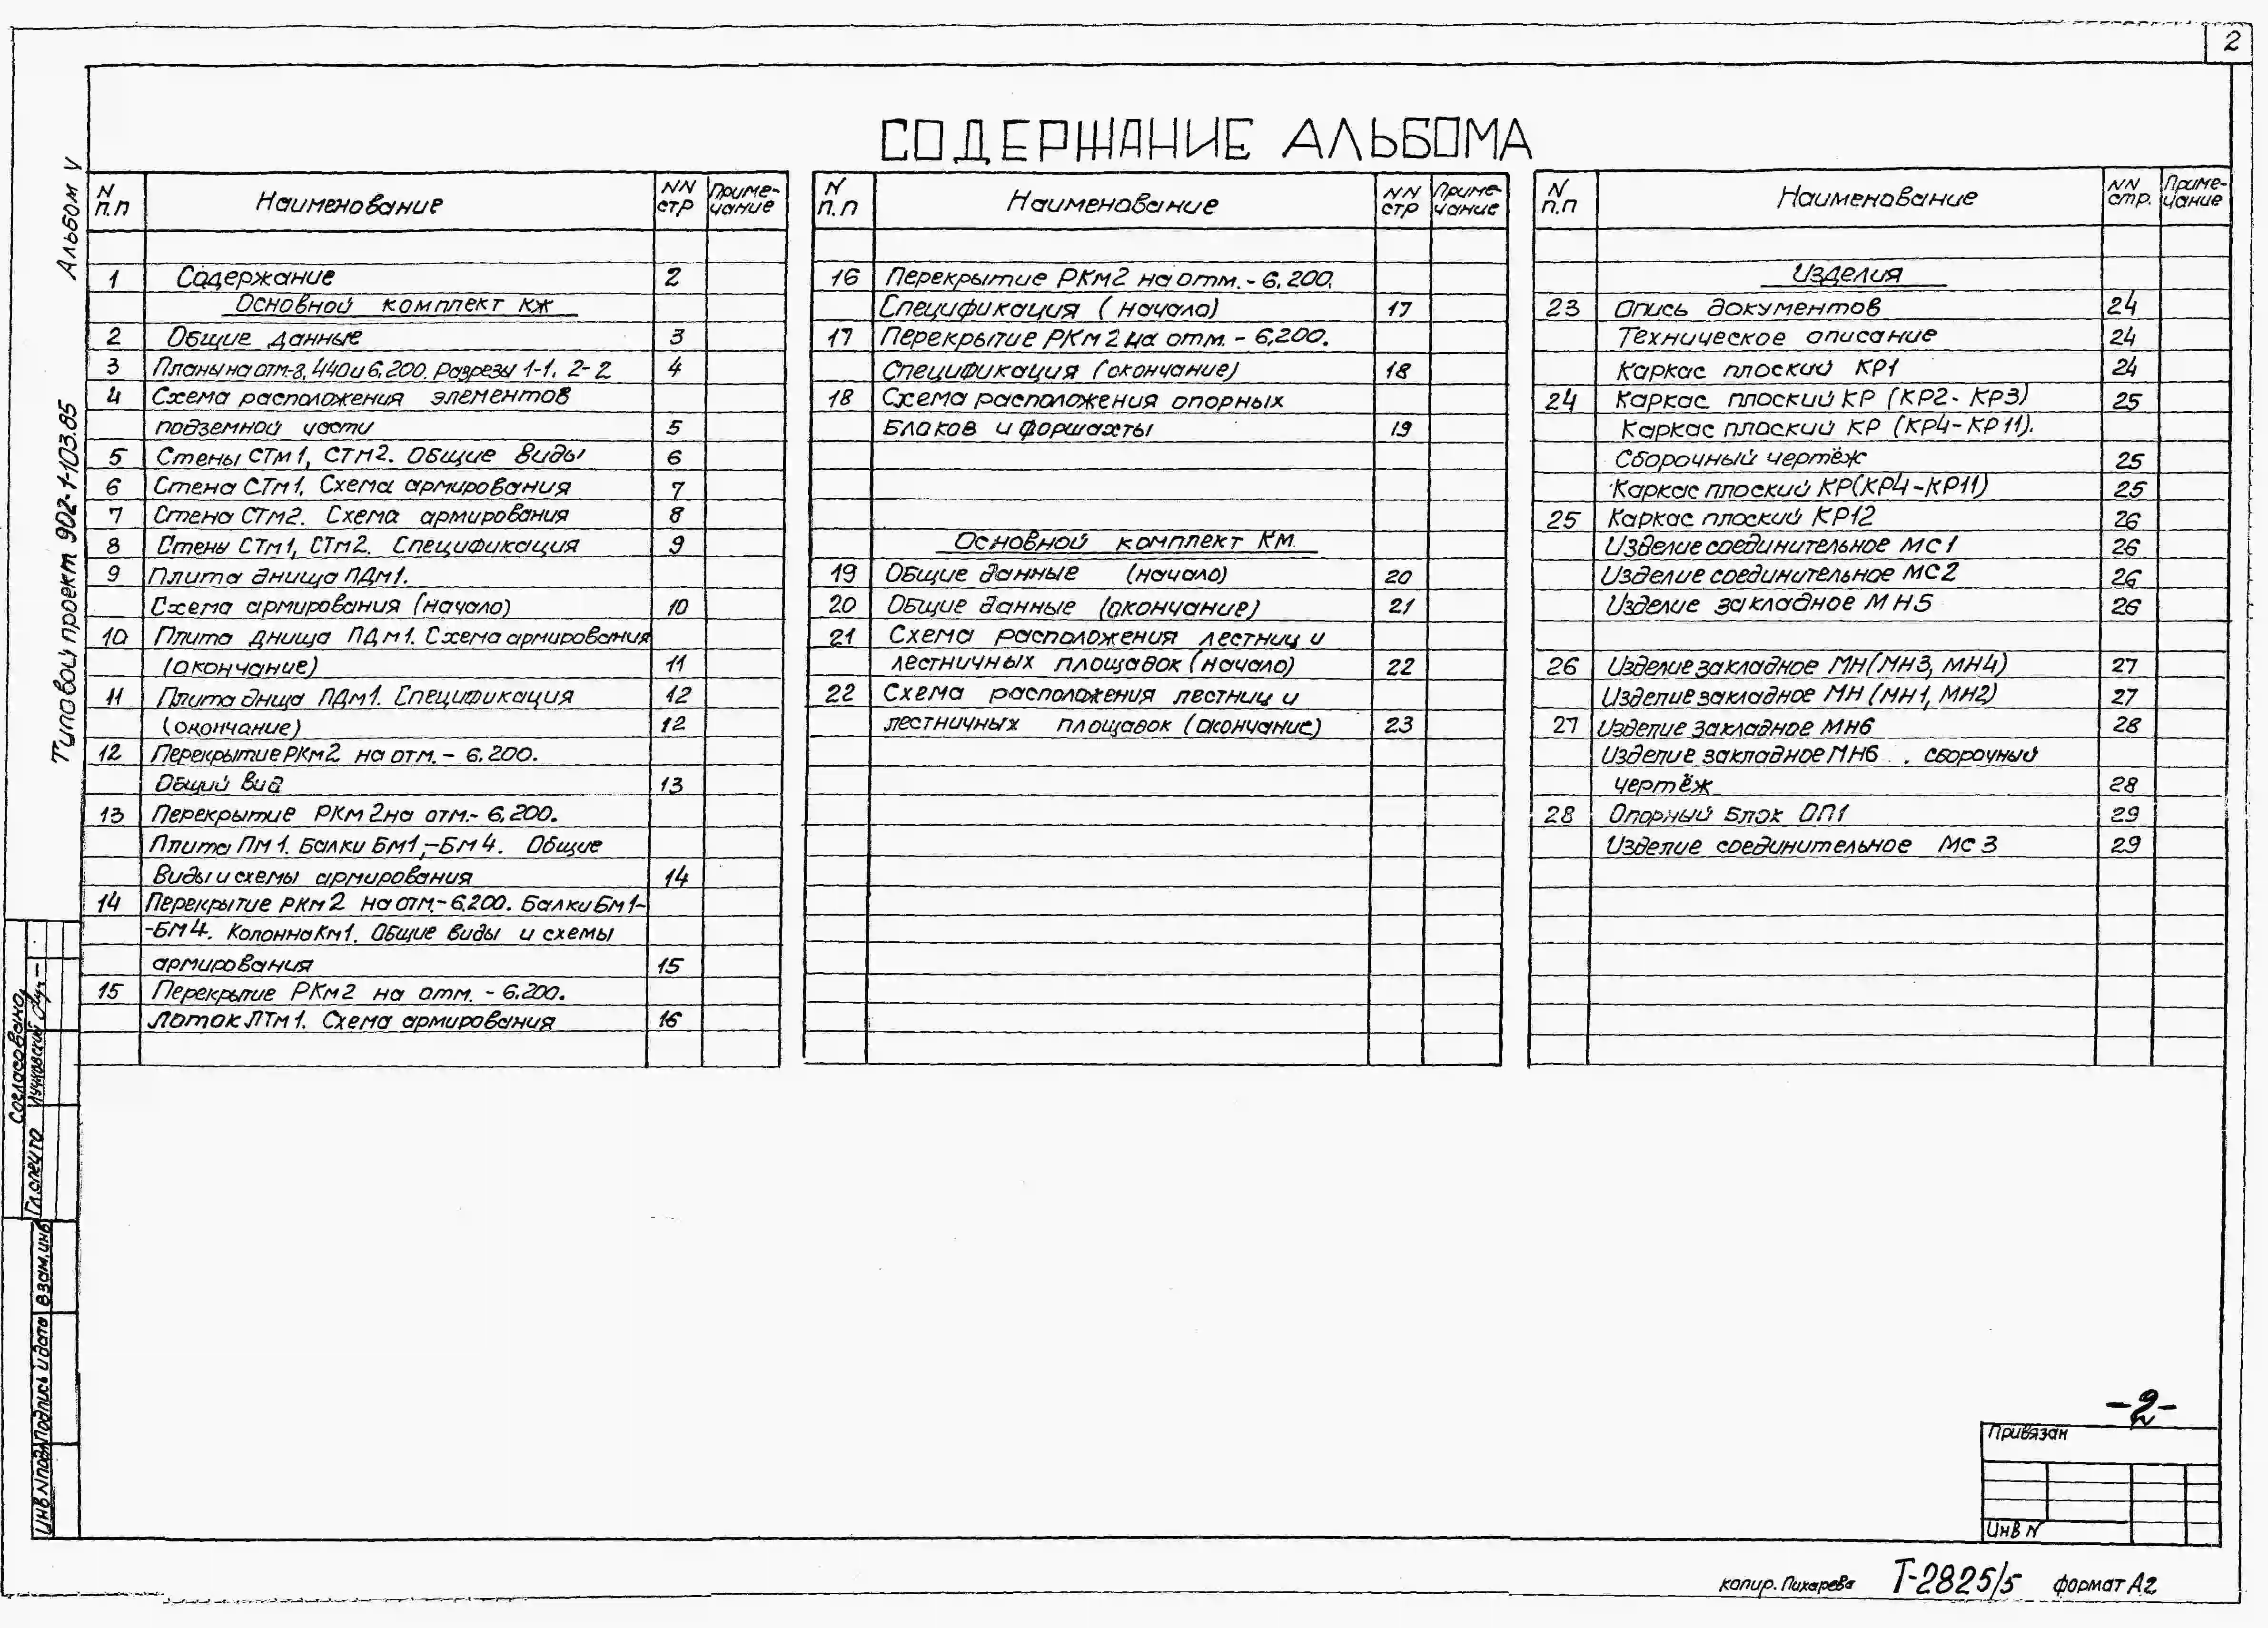 2
СОДЕРЖАНИЕ АЛЬБОМА
Альбом V
Типовой проект 902-1-103.85
N п.п Наименование NN стр Приме-чание
1 Содержание 2
Основной комплект КЖ
2 Общие данные 3
3 Планы на отм-8,440 и 6,200. Разрезы 1-1, 2-2 4
4 Схема расположения элементов
подземной части 5
5 Стены СТм1, СТм2. Общие виды 6
6 Стена СТм1. Схема армирования 7
7 Стена СТм2. Схема армирования 8
8 Стены СТм1, СТм2. Спецификация 9
9 Плита днища ПДм1.
Схема армирования (начало) 10
10 Плита днища ПДм1. Схема армирования
(окончание) 11
11 Плита днща ПДм1. Спецификация 12
(окончание) 12
12 Перекрытие РКм2 на отм. - 6.200.
Общий вид 13
13 Перекрытие РКм2 на отм.- 6,200.
Плита Пм1. Балки Бм1,-Бм4. Общие
виды и схемы армирования 14
14 Перекрытие РКм2 на отм.-6.200. Балки Бм1-
-Бм4. Колонна Км1. Общие виды и схемы
армирования 15
15 Перекрытие РКм2 на отм. - 6.200.
лоток ЛТм1. Схема армирования 16
N п.п Наименование NN стр Приме-чание
16 Перекрытие РКм2 на отм. - 6,200.
Спецификация (начало) 17
17 Перекрытие РКм2 на отм. - 6,200.
Спецификация (окончание) 18
18 Схема расположения опорных
блоков и форшахты 19
Основной комплект КМ
19 Общие данные (начало) 20
20 Общие данные (окончание) 21
21 Схема расположения лестниц и
лестничных площадок (начало) 22
22 Схема расположения лестниц и
лестничных площадок (окончание) 23
N п.п Наименование NN стр. Приме-чание
Изделия
23 Опись документов 24
Техническое описание 24
Каркас плоский КР1 24
24 Каркас плоский КР (КР2- КР3) 25
Каркас плоский КР (КР4-КР11).
Сборочный чертёж 25
Каркас плоский КР(КР4-КР11) 25
25 Каркас плоский КР12 26
Изделие соединительное МС1 26
Изделие соединительное МС2 26
Изделие закладное МН5 26
26 Изделие закладное МН(МН3, МН4) 27
Изделие закладное МН (МН1, МН2) 27
27 Изделие закладное МН6 28
Изделие закладное МН6 . сборочный
чертёж 28
28 Опорный блок ОП1 29
Изделие соединительное МС3 29
Согласовано
Гл.спец ТО
Инв N подл Подпись и дата Взам.инв
-2-
Привязан
Инв N
копир. Пихарева Т-2825/5 формат А2